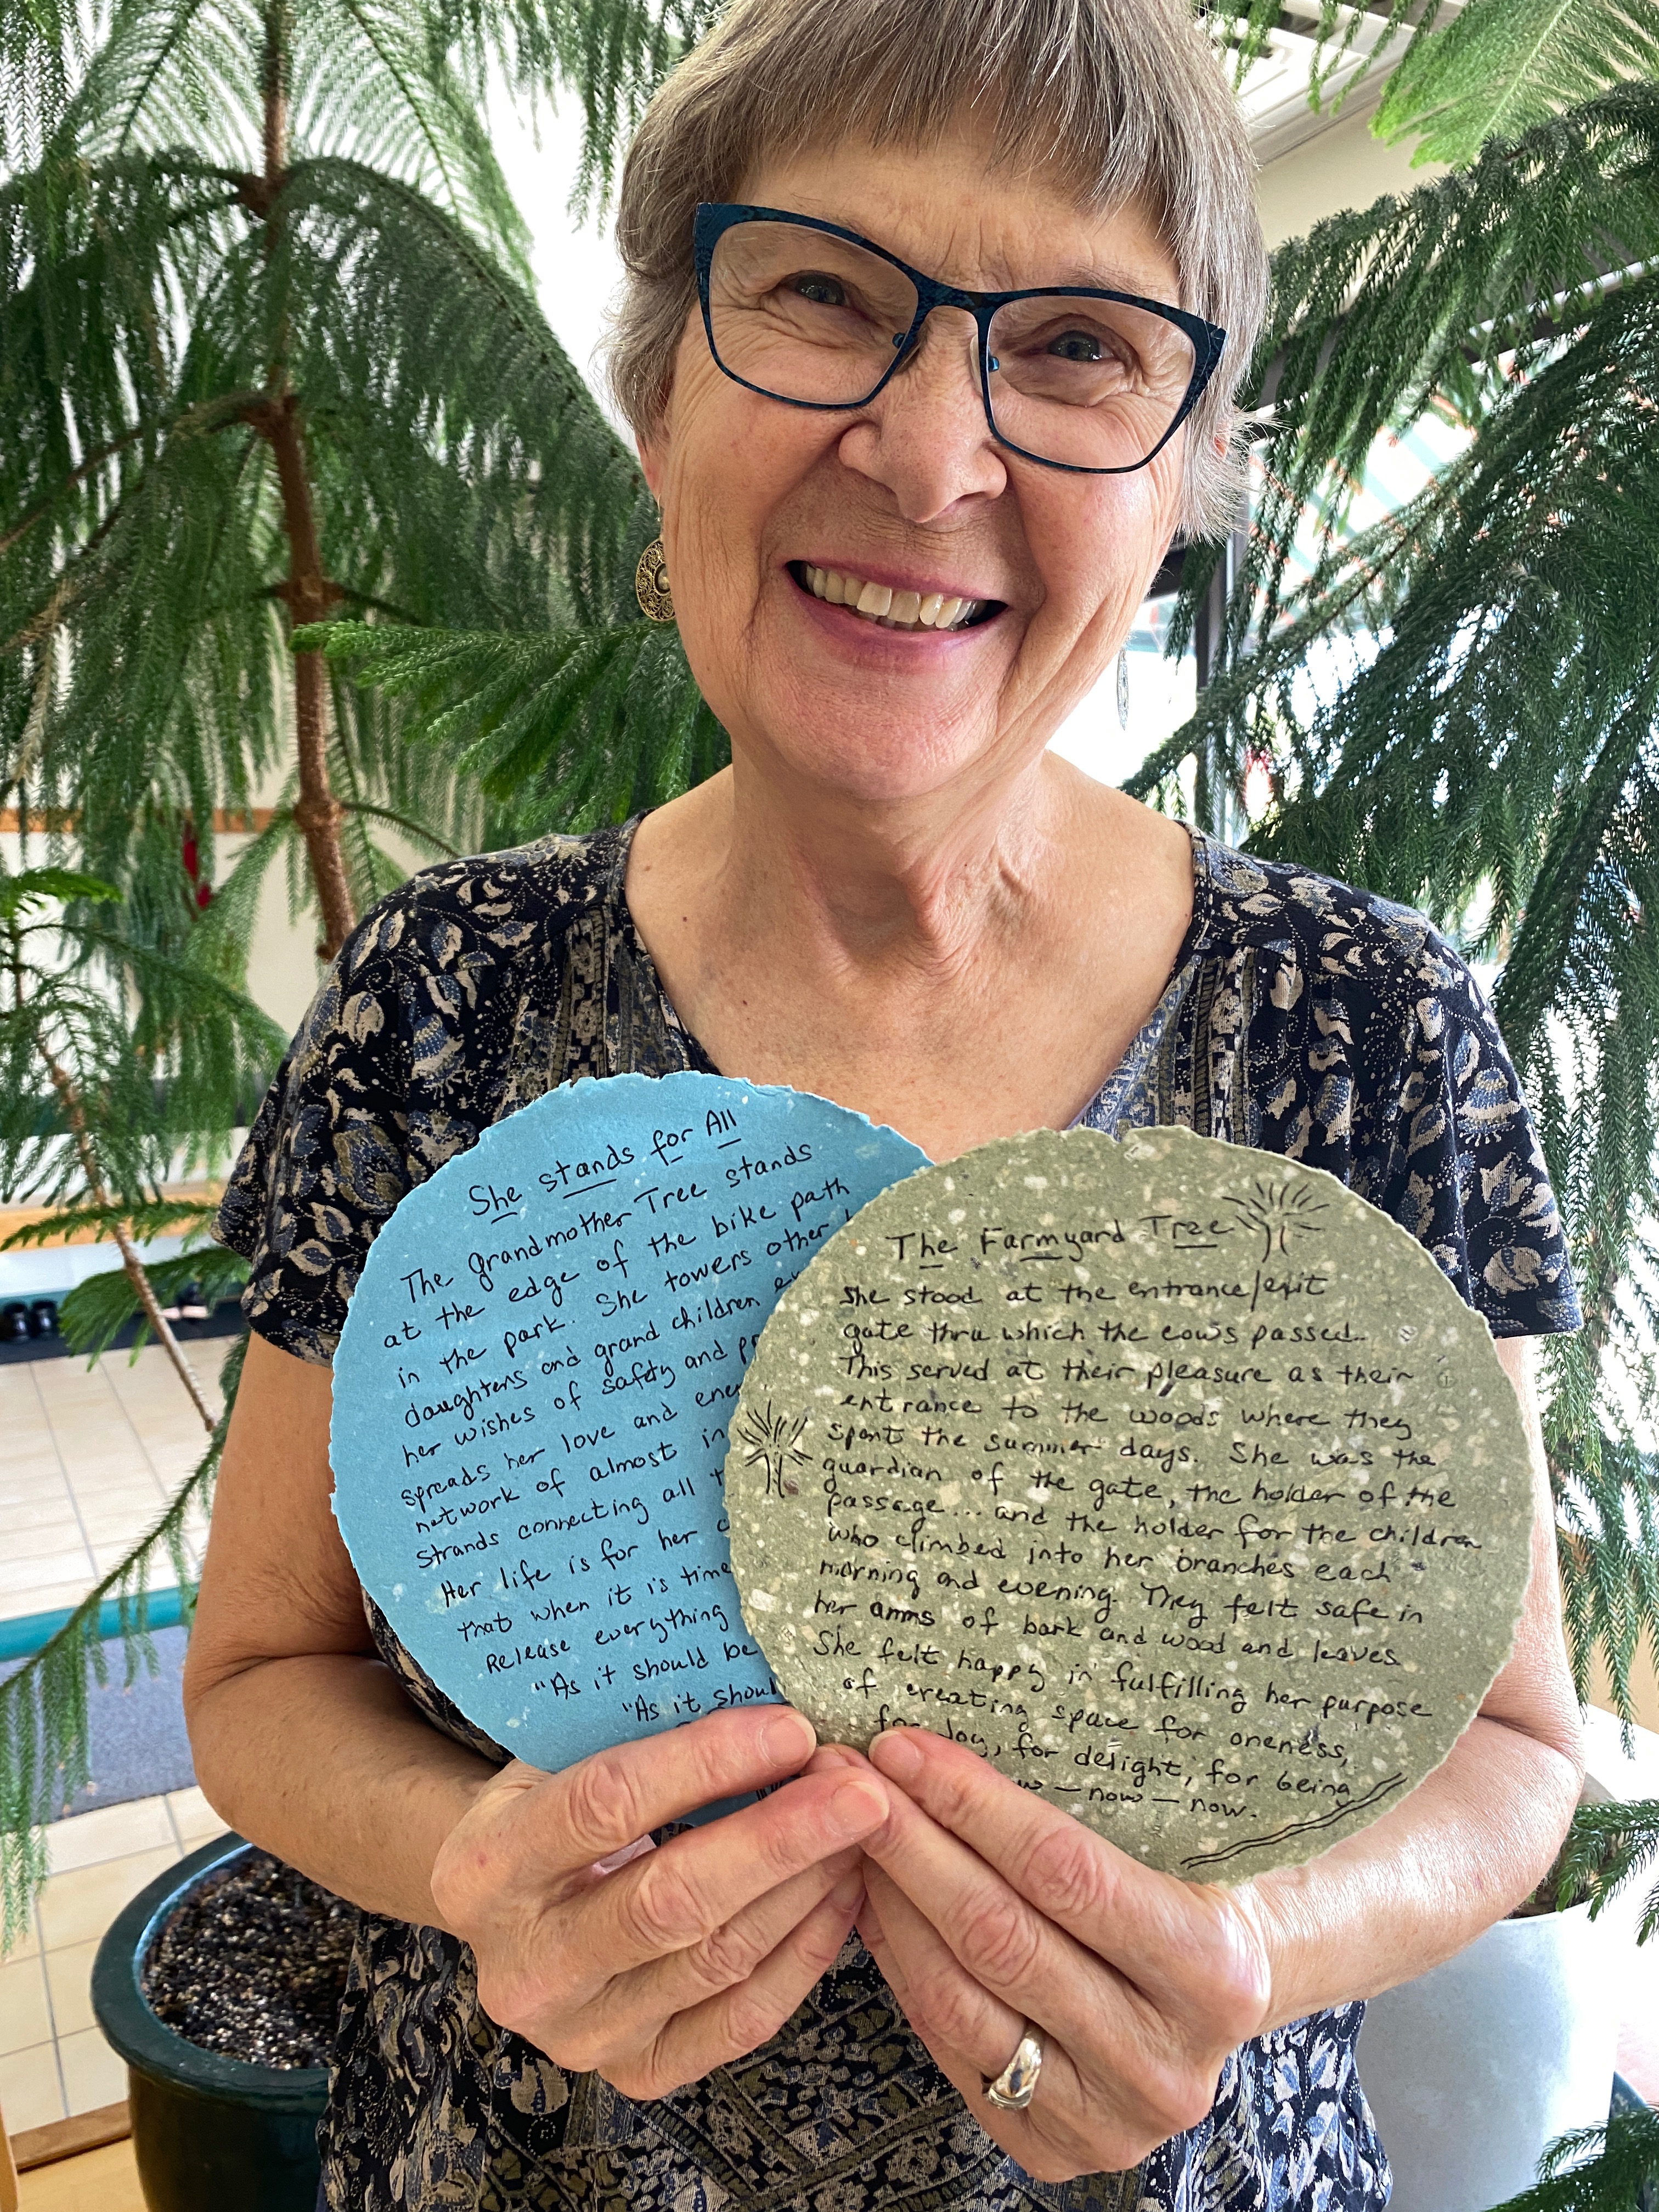 She stands for All
The grandmother Tree stands
at the edge of the bike path
in the park. She towers other
daughters and grand children
her wishes of safety and
spreads her love and
network of almost
strands connecting all
Her life is for her
that when it is time
Release everything
"As it should be
"As it
The Farmyard Tree
She stood at the entrance/exit
gate thru which the cows passed.
This served at their pleasure as their
entrance to the woods where they
spent the summer days. She was the
guardian of the gate, the holder of the
passage... and the holder for the children
who climbed into her branches each
morning and evening. They felt safe in
her arms of bark and wood and leaves
She felt happy in fulfilling her purpose
of creating space for oneness,
for Joy, for delight, for being
— now — now.